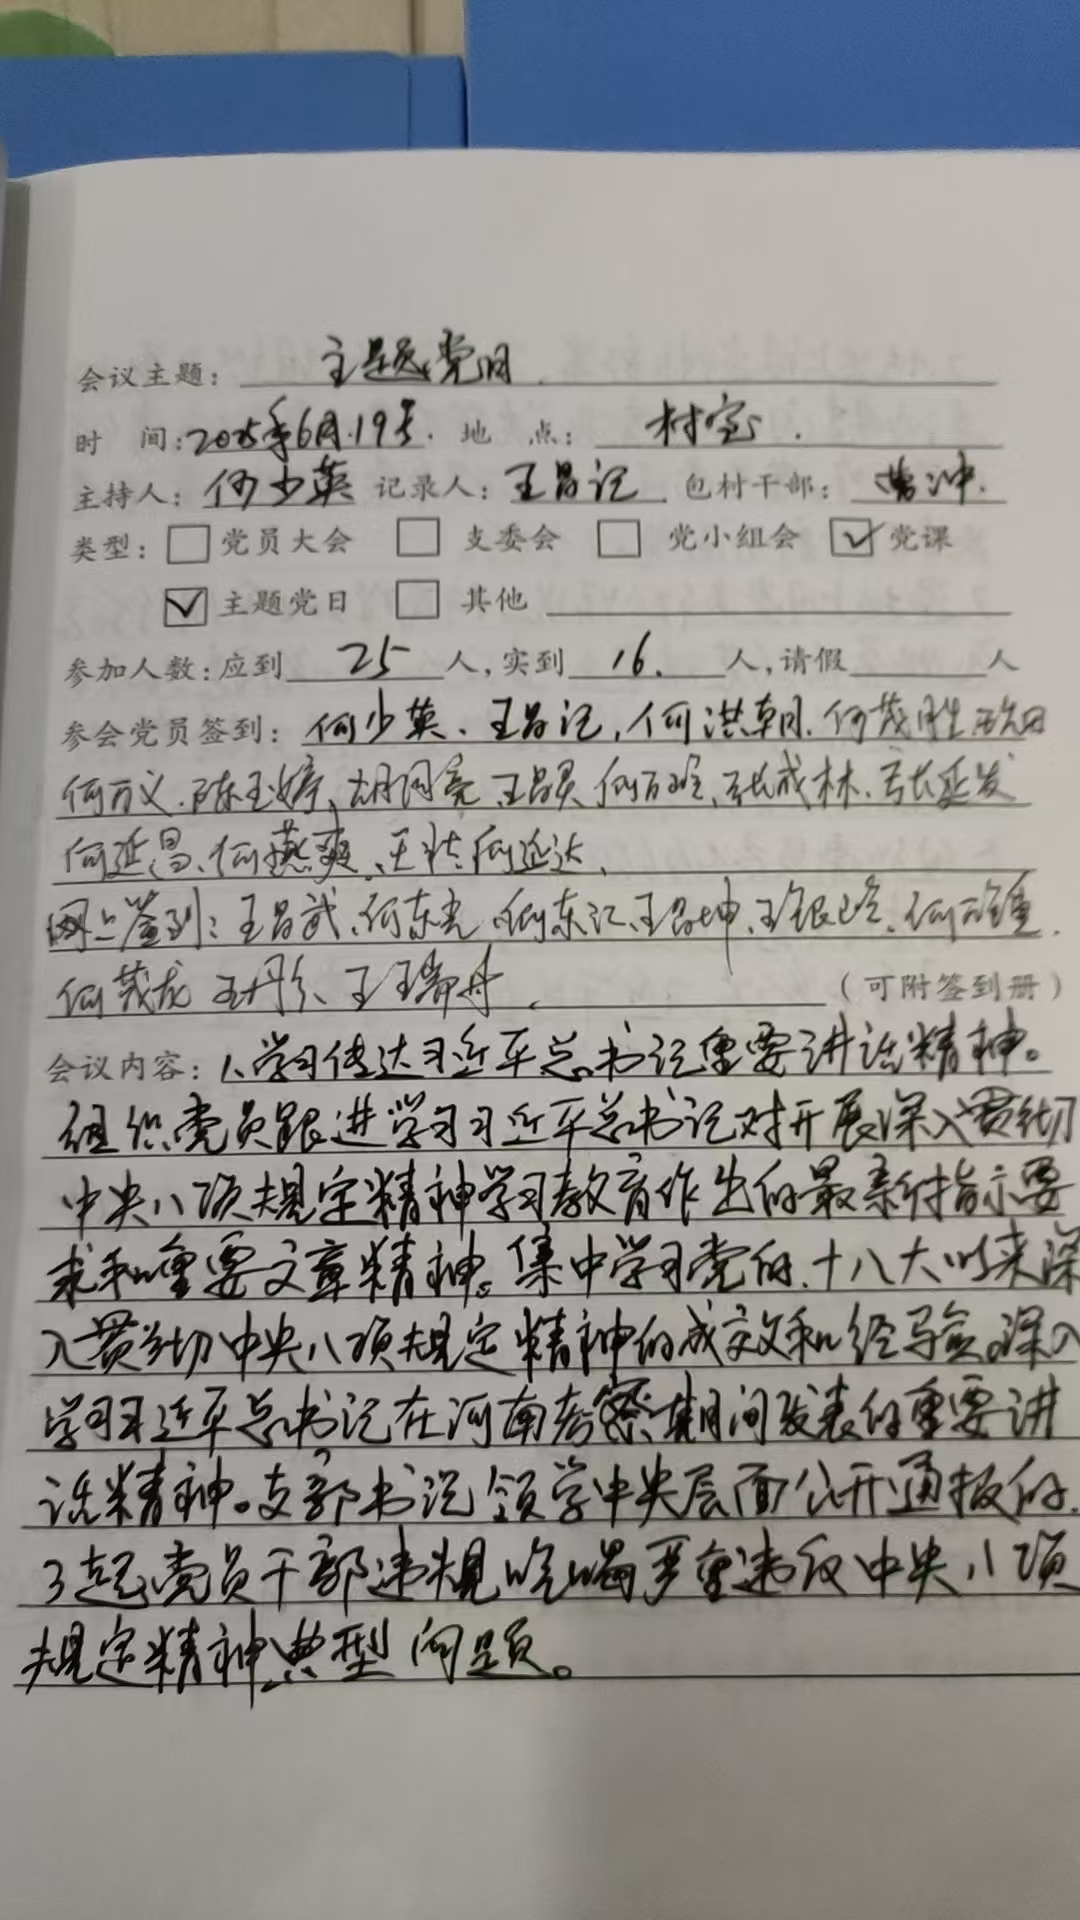 会议主题：主题党日
时 间：2025年6月19号 地 点：村室
主持人：何少英 记录人：王昌记 包村干部：曹冲
类型：□党员大会 □支委会 □党小组会 ☑党课
☑主题党日 □其他
参加人数：应到 25 人，实到 16 人，请假 人
参会党员签到：何少英、王昌记，何洪朝、何茂胜
何万义、陈玉婷、胡润亮、王昌灵、何万、张成林、张延发
何延昌、何燕爽、王、何延达、
网上签到：王昌武、何东光、何东汇、王昌坤、王银、何万
何茂龙 王丹 王瑞丹 （可附签到册）
会议内容：1、学习传达习近平总书记重要讲话精神。
组织党员跟进学习习近平总书记对开展深入贯彻
中央八项规定精神学习教育作出的最新指示要
求和重要文章精神。集中学习党的十八大以来深
入贯彻中央八项规定精神的成效和经验。深入
学习习近平总书记在河南考察期间发表的重要讲
话精神。支部书记领学中央层面公开通报的
3起党员干部违规吃喝严重违反中央八项
规定精神典型问题。